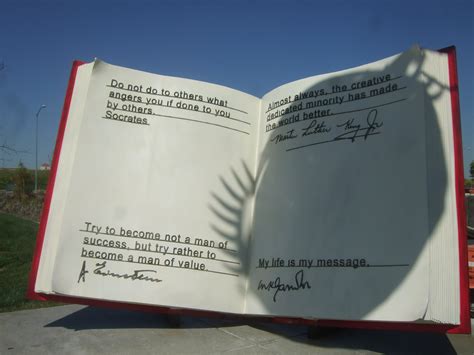 Do not do to others what
angers you if done to you
by others.
Socrates
Try to become not a man of
success, but try rather to
become a man of value.
A Einstein
Almost always, the creative
dedicated minority has made
the world better.
Martin Luther King Jr
My life is my message.
MKGandhi